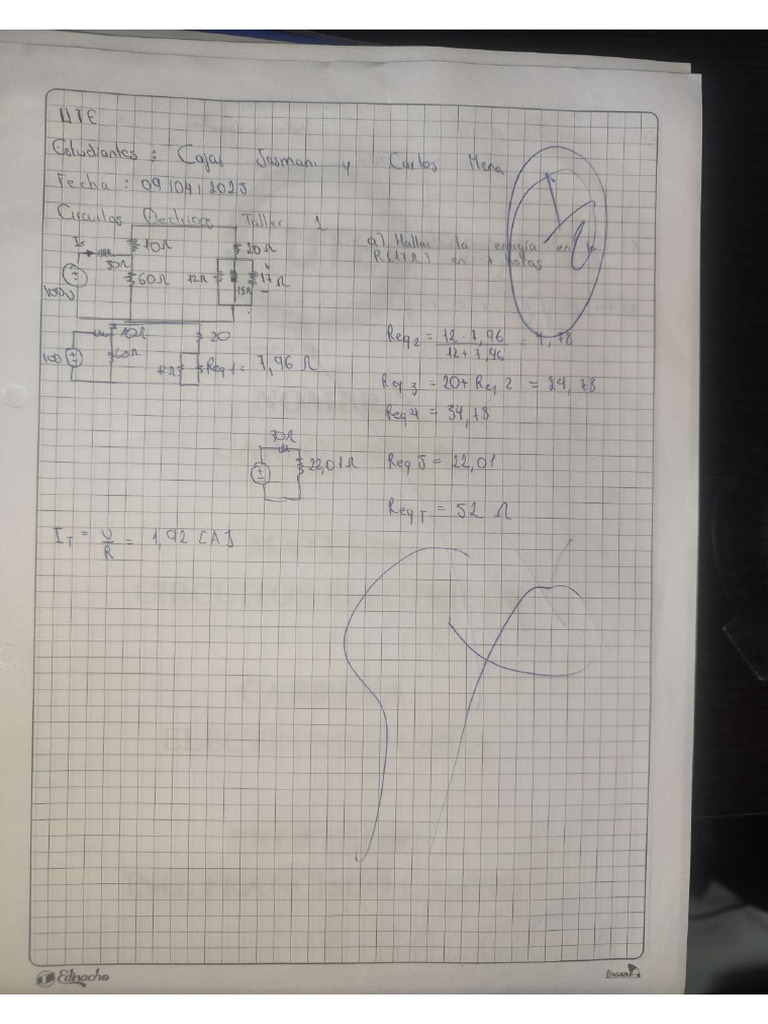 UTE
Estudiantes: Cajas Jasmani y Carlos Mena
Fecha: 09/04/2025
Circuitos Electricos Taller 1
a) Hallar la energía en la
R(17Ω) en 4 horas
10Ω
20Ω
30Ω
60Ω
12Ω
15Ω
17Ω
100V
10Ω
20
100
60Ω
12Ω
Req1 = 7,96 Ω
Req2 = 12 · 7,96 / 12 + 7,96 = 4,78
Req3 = 20 + Req2 = 24,78
Req4 = 34,78
30Ω
22,01Ω
Req5 = 22,01
ReqT = 52 Ω
IT = V/R = 1,92 [A]
Ednacho